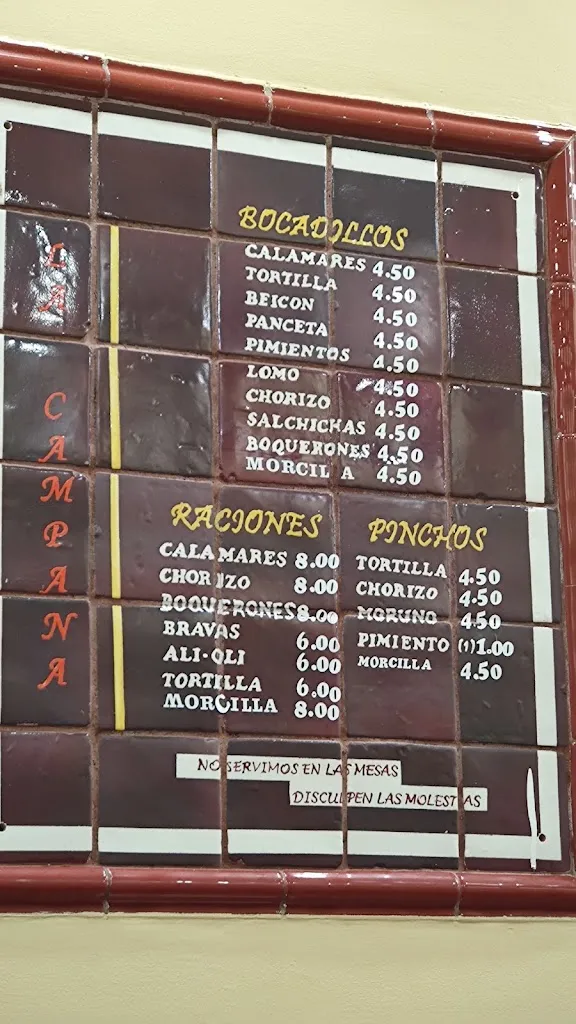 LA CAMPANA
BOCADILLOS
CALAMARES 4.50
TORTILLA 4.50
BEICON 4.50
PANCETA 4.50
PIMIENTOS 4.50
LOMO 4.50
CHORIZO 4.50
SALCHICHAS 4.50
BOQUERONES 4.50
MORCILLA 4.50
RACIONES
CALAMARES 8.00
CHORIZO 8.00
BOQUERONES 8.00
BRAVAS 6.00
ALI-OLI 6.00
TORTILLA 6.00
MORCILLA 8.00
PINCHOS
TORTILLA 4.50
CHORIZO 4.50
MORUNO 4.50
PIMIENTO (1) 1.00
MORCILLA 4.50
NO SERVIMOS EN LAS MESAS
DISCULPEN LAS MOLESTIAS